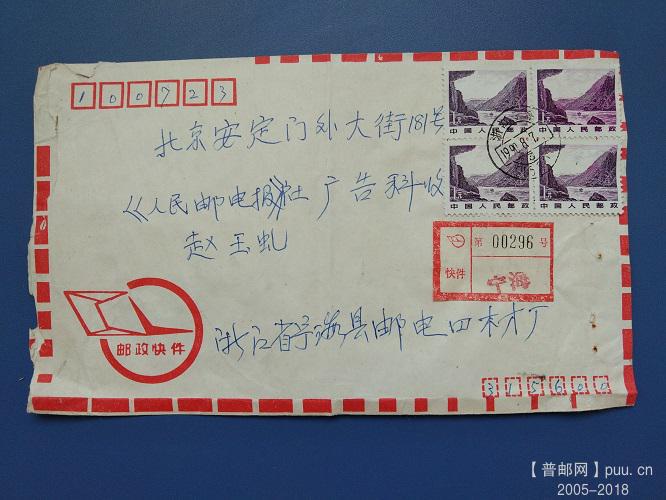 100723
中国人民邮政
中国人民邮政
中国人民邮政
中国人民邮政
1991.8.
北京安定门外大街181号
《人民邮电报》社广告科收
赵玉虬
第 00296 号
快件
邮政快件
浙江省宁海县邮电四木才厂
315600
【普邮网】puu.cn
2005-2018